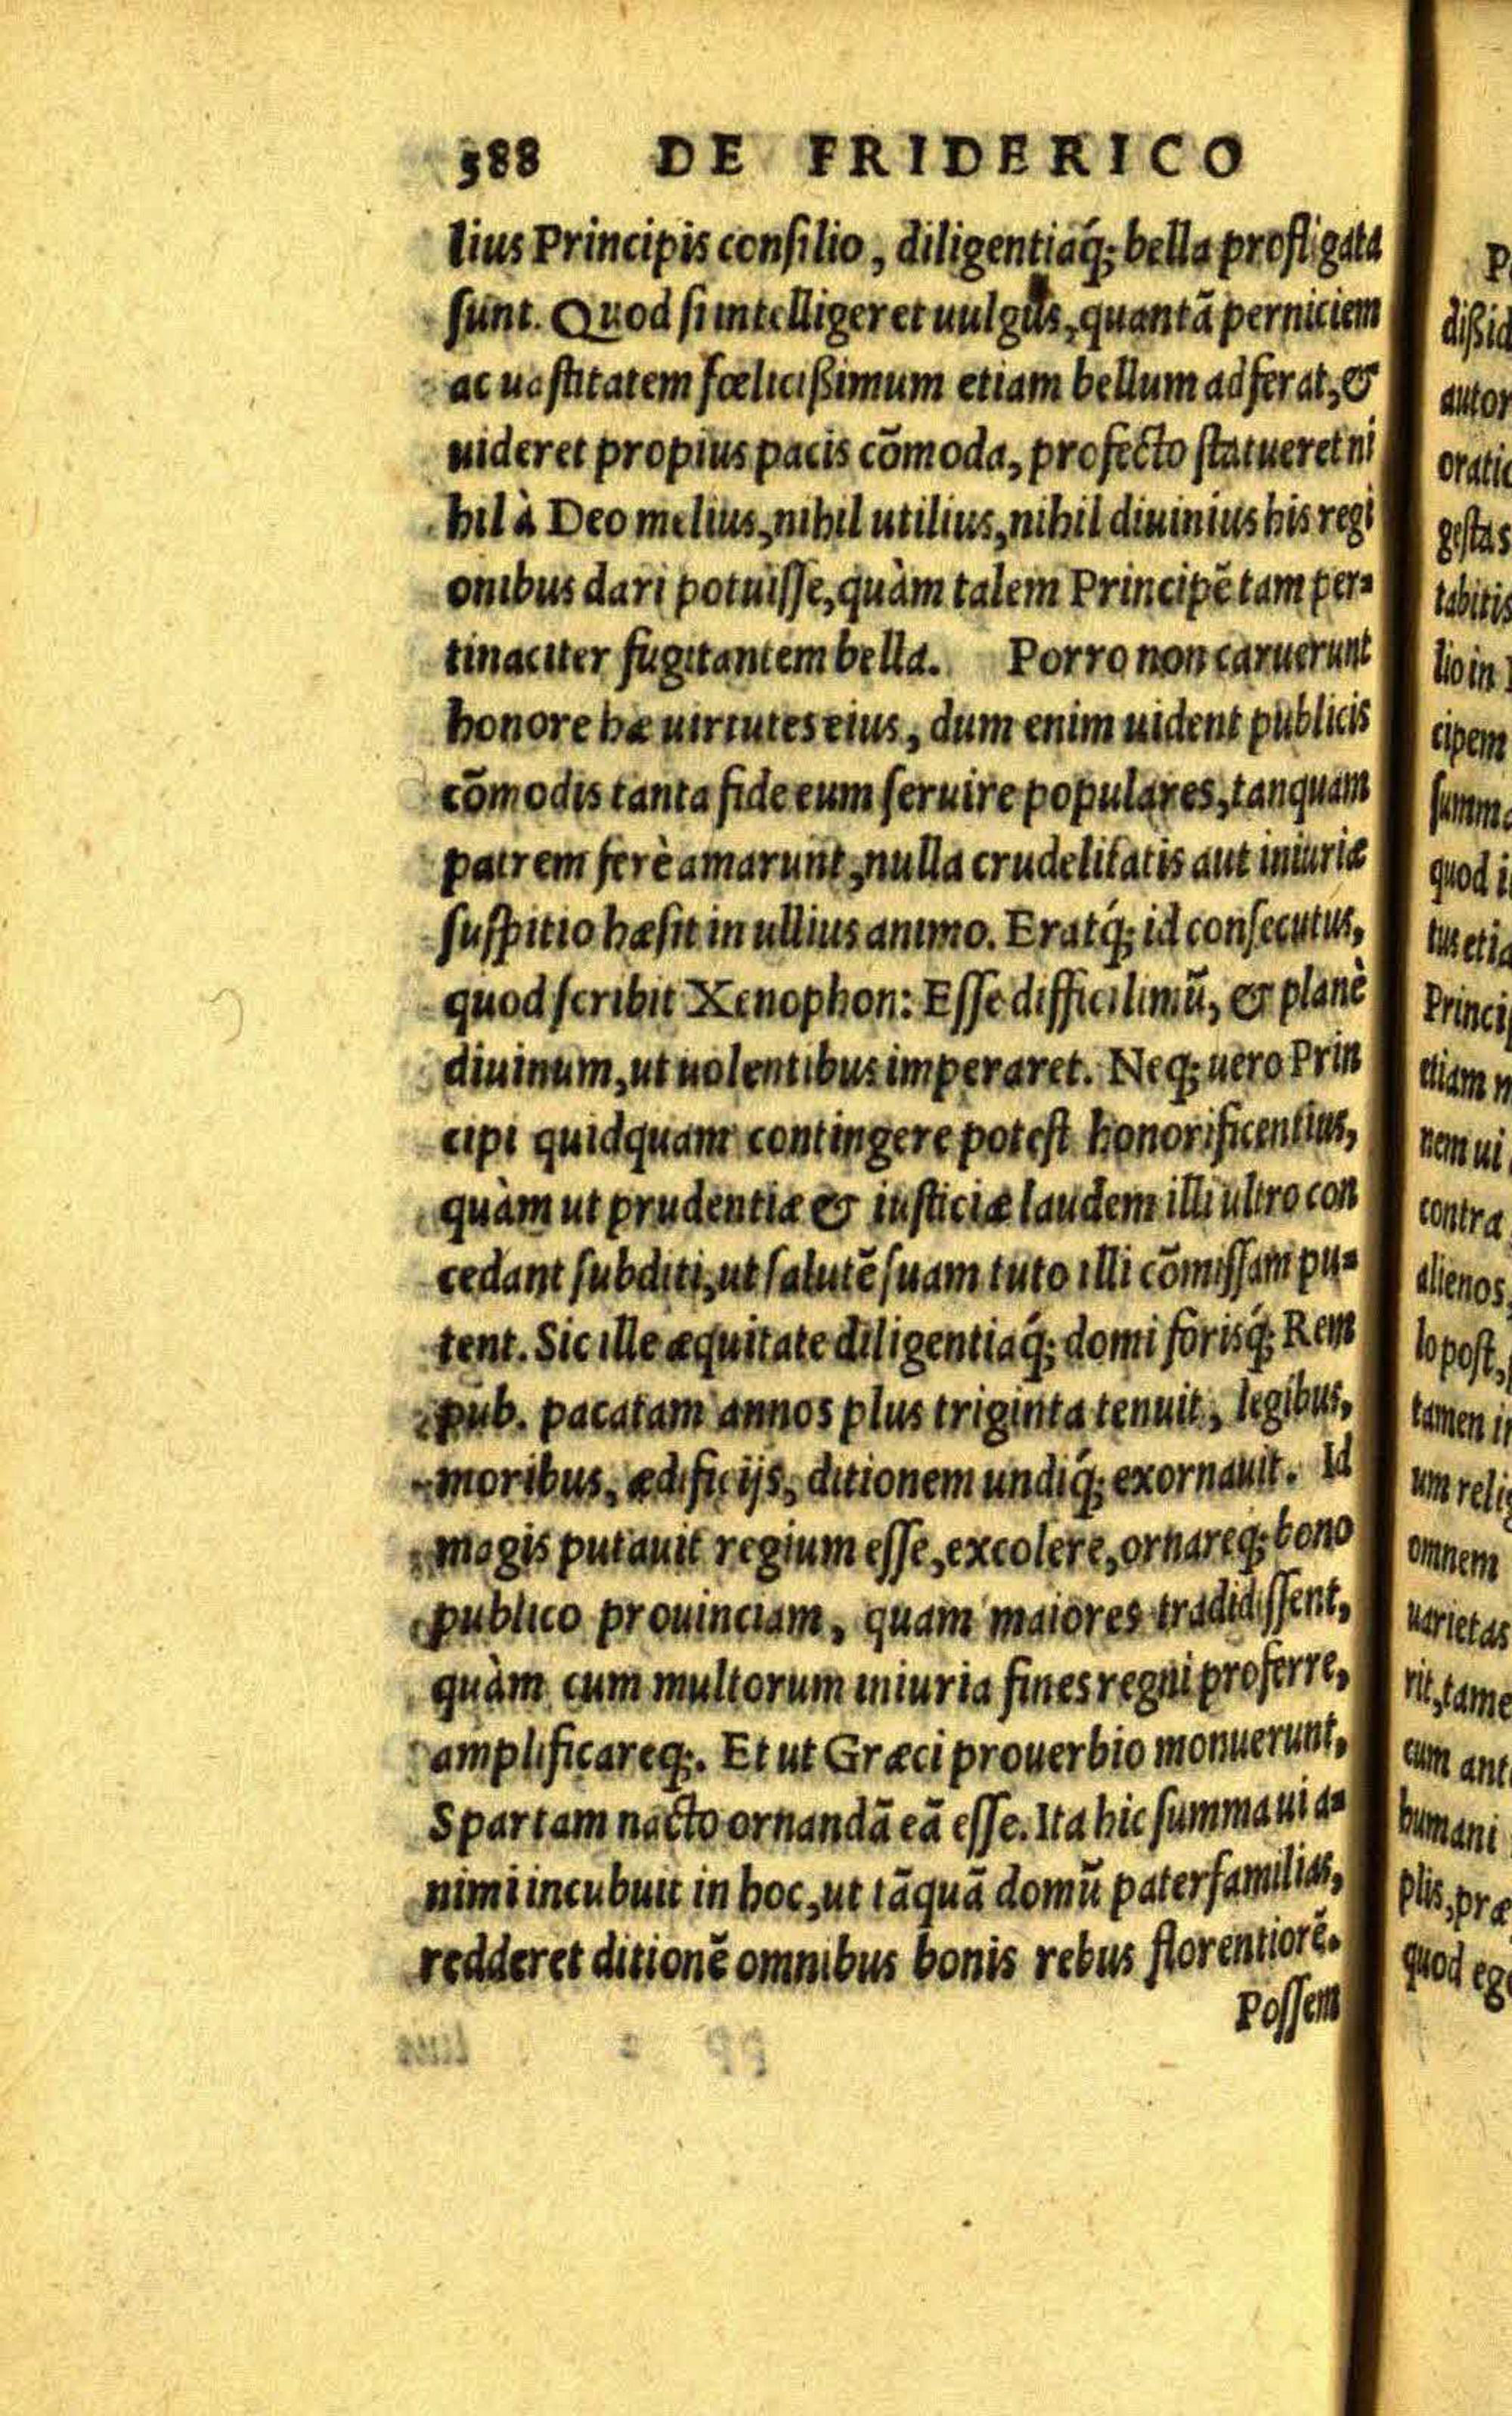 388 DE FRIDERICO
lius Principis consilio, diligentiaq́; bella profligata
sunt. Quod si intelligeret uulgus, quantã perniciem
ac uastitatem fœlicißimum etiam bellum adferat, &
uideret propius pacis cõmoda, profecto statueret ni
hil à Deo melius, nihil utilius, nihil diuinius his regi
onibus dari potuisse, quàm talem Principẽ tam per-
tinaciter fugitantem bella. Porro non caruerunt
honore hæ uirtutes eius, dum enim uident publicis
cõmodis tanta fide eum seruire populares, tanquam
patrem ferè amarunt, nulla crudelitatis aut iniuriæ
suspitio hæsit in ullius animo. Eratq́; id consecutus,
quod scribit Xenophon: Esse difficilimũ, & planè
diuinum, ut uolentibus imperaret. Neq; uero Prin
cipi quidquam contingere potest honorificentius,
quàm ut prudentiæ & iusticiæ laudem illi ultro con
cedant subditi, ut salutẽ suam tuto illi cõmissam pu-
tent. Sic ille æquitate diligentiaq́; domi forisq́; Rem
pub. pacatam annos plus triginta tenuit, legibus,
moribus, ædificijs, ditionem undiq́; exornauit. Id
magis putauit regium esse, excolere, ornareq; bono
publico prouinciam, quam maiores tradidissent,
quàm cum multorum iniuria fines regni proferre,
amplificareq;. Et ut Græci prouerbio monuerunt,
Spartam nacto ornandã eã esse. Ita hic summa ui a-
nimi incubuit in hoc, ut tãquã domũ paterfamilias,
redderet ditionẽ omnibus bonis rebus florentiorẽ.
Possem
P
dißid
autor
oratio
gestas
tabitis
lio in
cipem
summa
quod i
tus etia
Princip
etiam n
nem ui
contra
alienos,
lo post,
tamen in
um relig
omnem
uarietas
rit, tame
cum ant
humani
plis, præ
quod eg